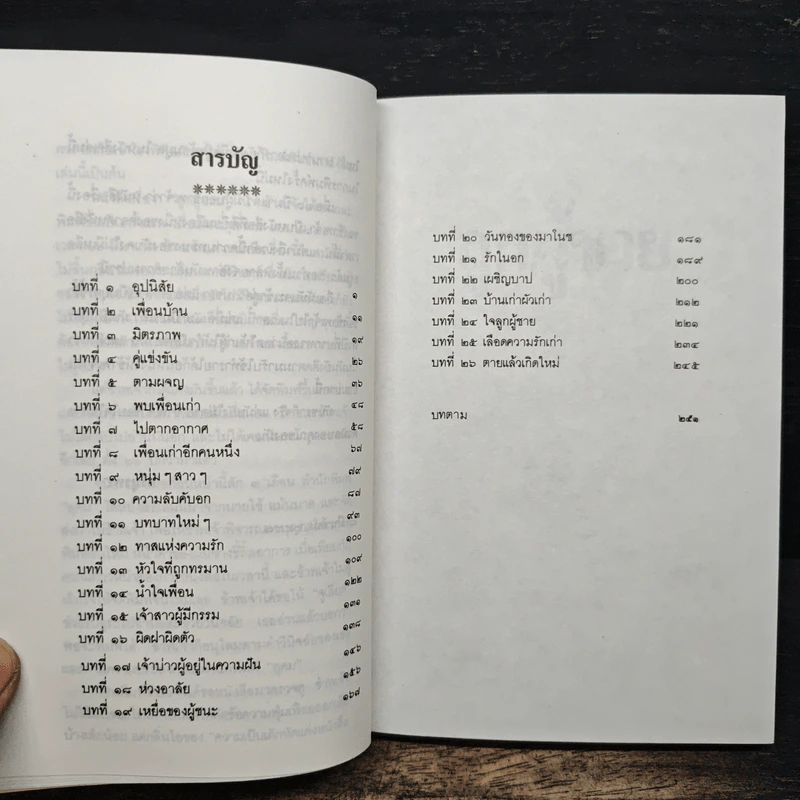 สารบัญ
******
บทที่ ๑ อุปนิสัย ๑
บทที่ ๒ เพื่อนบ้าน ๑๑
บทที่ ๓ มิตรภาพ ๑๙
บทที่ ๔ คู่แข่งขัน ๒๖
บทที่ ๕ ตามผจญ ๓๖
บทที่ ๖ พบเพื่อนเก่า ๔๘
บทที่ ๗ ไปตากอากาศ ๕๘
บทที่ ๘ เพื่อนเก่าอีกคนหนึ่ง ๖๗
บทที่ ๙ หนุ่ม ๆ สาว ๆ ๗๙
บทที่ ๑๐ ความลับคับอก ๘๗
บทที่ ๑๑ บทบาทใหม่ ๆ ๙๓
บทที่ ๑๒ ทาสแห่งความรัก ๑๐๐
บทที่ ๑๓ หัวใจที่ถูกทรมาน ๑๐๙
บทที่ ๑๔ น้ำใจเพื่อน ๑๒๒
บทที่ ๑๕ เจ้าสาวผู้มีกรรม ๑๓๑
บทที่ ๑๖ ผิดฝาผิดตัว ๑๓๘
บทที่ ๑๗ เจ้าบ่าวผู้อยู่ในความฝัน ๑๔๖
บทที่ ๑๘ ห่วงอาลัย ๑๕๖
บทที่ ๑๙ เหยื่อของผู้ชนะ ๑๖๗
บทที่ ๒๐ วันทองของมาโนช ๑๘๑
บทที่ ๒๑ รักในอก ๑๘๙
บทที่ ๒๒ เผชิญบาป ๒๐๐
บทที่ ๒๓ บ้านเก่าผัวเก่า ๒๑๒
บทที่ ๒๔ ใจลูกผู้ชาย ๒๒๑
บทที่ ๒๕ เลือดความรักเก่า ๒๓๔
บทที่ ๒๖ ตายแล้วเกิดใหม่ ๒๔๕
บทตาม ๒๕๑